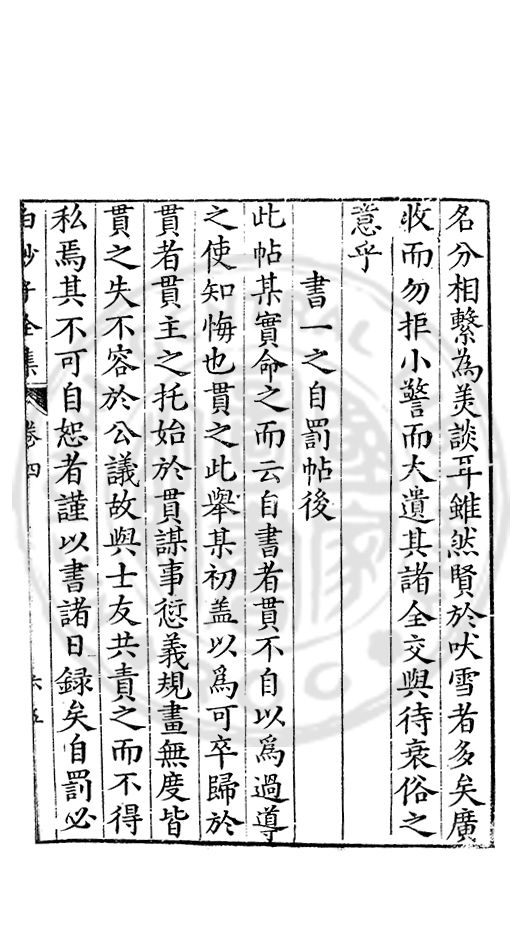 名分相繫為美談耳雖然賢於吠雪者多矣廣
收而勿拒小警而大遺其諸全交與待衰俗之
意乎
書一之自罰帖後
此帖某實命之而云自書者貫不自以爲過導
之使知悔也貫之此舉某初盖以爲可卒歸於
貫者貫主之托始於貫謀事愆義規畫無度皆
貫之失不容於公議故與士友共責之而不得
私焉其不可自恕者謹以書諸日録矣自罰必
白沙子全集 卷四 六五